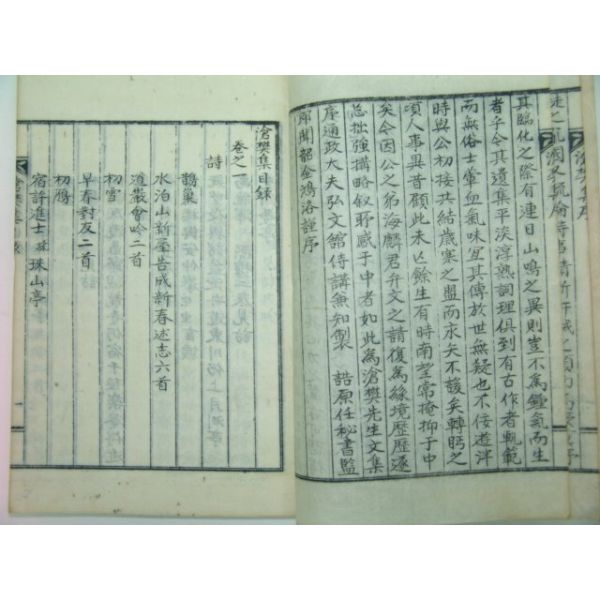 滄樊集序
其臨化之際有連日山鳴之異則豈不爲鍾氣而生
者乎今其遺集平淡淳熟詞理俱到有古作者軌範
而無俗士葷血氣味宜其傳於世無疑也不佞遊泮
時與公初接共結歲寒之盟而永矢不諼矣轉眄之
頃人事異昔顧此未亡餘生有時南望常掩抑于中
矣今因公之弟海麟君弁文之請復爲緣境歷歷遂
忘拙强搆略叙所感于中者如此爲滄樊先生文集
序通政大夫弘文館侍講兼知製 誥原任秘書監
郎聞韶金鴻洛謹序
滄樊集目錄
卷之一
詩
鵲巢
水泊山新屋告成新春述志六首
道叢會吟二首
初雪
早春對友二首
初鴈
宿許進士 珠山亭